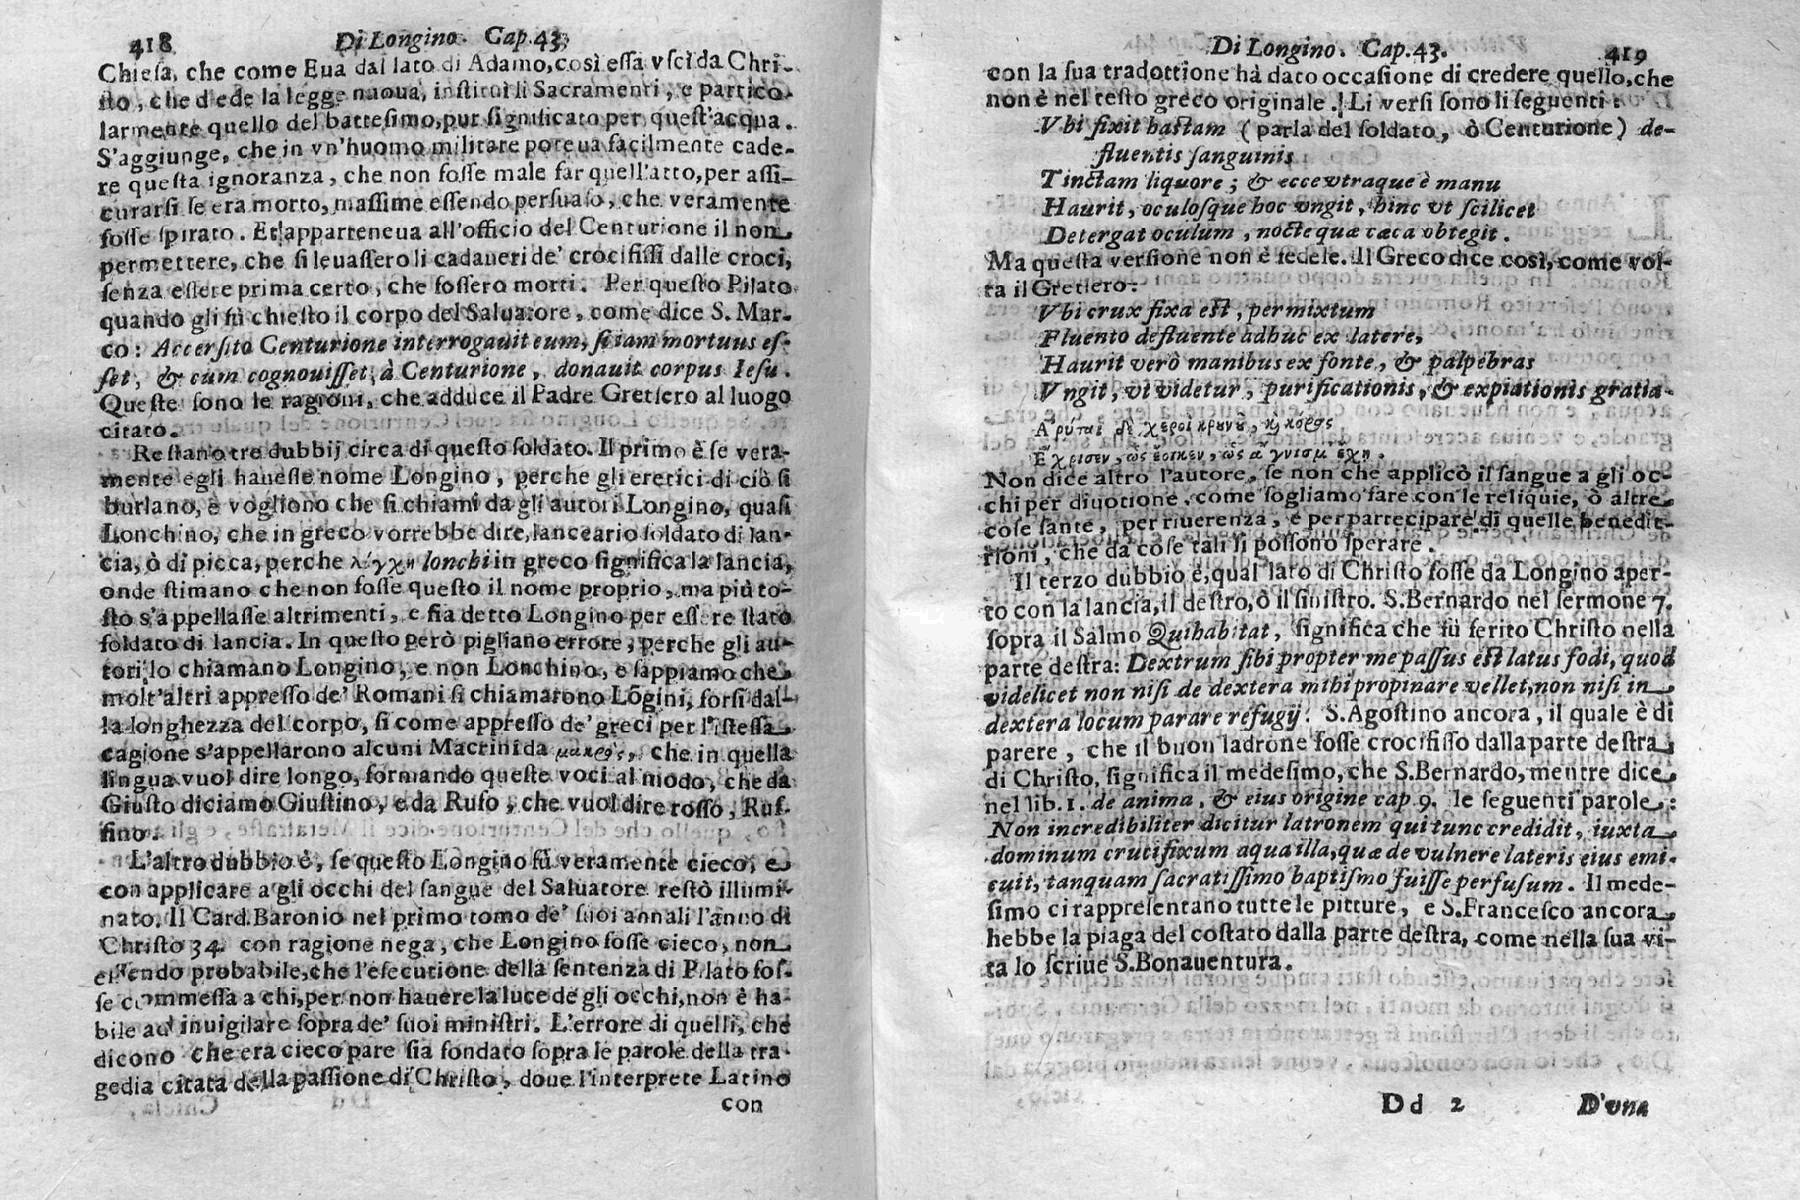 418 Di Longino. Cap. 43.
Chiesa, che come Eua dal lato di Adamo, così essa vscì da Chri-
sto, che diede la legge nuoua, instituì li Sacramenti, e partico-
larmente quello del battesimo, pur significato per quest'acqua.
S'aggiunge, che in vn'huomo militare poteua facilmente cade-
re questa ignoranza, che non fosse male far quell'atto, per assi-
curarsi se era morto, massime essendo persuaso, che veramente
fosse spirato. Et apparteneua all'officio del Centurione il non
permettere, che si leuassero li cadaueri de' crocifissi dalle croci,
senza essere prima certo, che fossero morti. Per questo Pilato
quando gli fù chiesto il corpo del Saluatore, come dice S. Mar-
co: Accersito Centurione interrogauit eum, si iam mortuus es-
set, & cum cognouisset, à Centurione, donauit corpus Iesu.
Queste sono le ragioni, che adduce il Padre Gretsero al luogo
citato.
Restano tre dubbij circa di questo soldato. Il primo è se vera-
mente egli hauesse nome Longino, perche gli eretici di ciò si
burlano, e vogliono che si chiami da gli autori Longino, quasi
Lonchino, che in greco vorrebbe dire, lanceario soldato di lan-
cia, ò di picca, perche λόγχη lonchi in greco significa la lancia,
onde stimano che non fosse questo il nome proprio, ma più to-
sto s'appellasse altrimenti, e sia detto Longino per essere stato
soldato di lancia. In questo però pigliano errore, perche gli au-
tori lo chiamano Longino, e non Lonchino, e sappiamo che
molt'altri appresso de' Romani si chiamarono Lõgini, forsi dal-
la longhezza del corpo, si come appresso de' greci per l'istessa
cagione s'appellarono alcuni Macrini da μακρὸς, che in quella
lingua vuol dire longo, formando queste voci al modo, che da
Giusto diciamo Giustino, e da Rufo, che vuol dire rosso, Ruf-
fino.
L'altro dubbio è, se questo Longino fù veramente cieco, e
con applicare a gli occhi del sangue del Saluatore restò illumi-
nato. Il Card. Baronio nel primo tomo de' suoi annali l'anno di
Christo 34. con ragione nega, che Longino fosse cieco, non
essendo probabile, che l'esecutione della sentenza di Pilato fos-
se commessa a chi, per non hauere la luce de gli occhi, non è ha-
bile ad inuigilare sopra de' suoi ministri. L'errore di quelli, che
dicono che era cieco pare sia fondato sopra le parole della tra-
gedia citata della passione di Christo, doue l'interprete Latino
con
Di Longino. Cap. 43. 419
con la sua tradottione hà dato occasione di credere quello, che
non è nel testo greco originale. Li versi sono li seguenti:
Vbi fixit hastam (parla del soldato, ò Centurione) de-
fluentis sanguinis
Tinctam liquore; & ecce vtraque è manu
Haurit, oculosque hoc vngit, hinc vt scilicet
Detergat oculum, nocte quæ cæca obtegit.
Ma questa versione non è fedele. Il Greco dice così, come vol-
ta il Gretsero:
Vbi crux fixa est, permixtum
Fluento defluente adhuc ex latere,
Haurit verò manibus ex fonte, & palpebras
Vngit, vt videtur, purificationis, & expiationis gratia.
Non dice altro l'autore, se non che applicò il sangue a gli oc-
chi per diuotione, come sogliamo fare con le reliquie, ò altre
cose sante, per riuerenza, e per partecipare di quelle benedit-
tioni, che da cose tali si possono sperare.
Il terzo dubbio è, qual lato di Christo fosse da Longino aper-
to con la lancia, il destro, ò il sinistro. S. Bernardo nel sermone 7.
sopra il Salmo Qui habitat, significa che fù ferito Christo nella
parte destra: Dextrum sibi propter me passus est latus fodi, quod
videlicet non nisi de dextera mihi propinare vellet, non nisi in
dextera locum parare refugij. S. Agostino ancora, il quale è di
parere, che il buon ladrone fosse crocifisso dalla parte destra
di Christo, significa il medesimo, che S. Bernardo, mentre dice
nel lib. 1. de anima, & eius origine cap 9. le seguenti parole:
Non incredibiliter dicitur latronem qui tunc credidit, iuxta
dominum crucifixum aqua illa, quæ de vulnere lateris eius emi-
cuit, tanquam sacratissimo baptismo fuisse perfusum. Il mede-
simo ci rappresentano tutte le pitture, e S. Francesco ancora
hebbe la piaga del costato dalla parte destra, come nella sua vi-
ta lo scriue S. Bonauentura.
Dd 2 D'vna